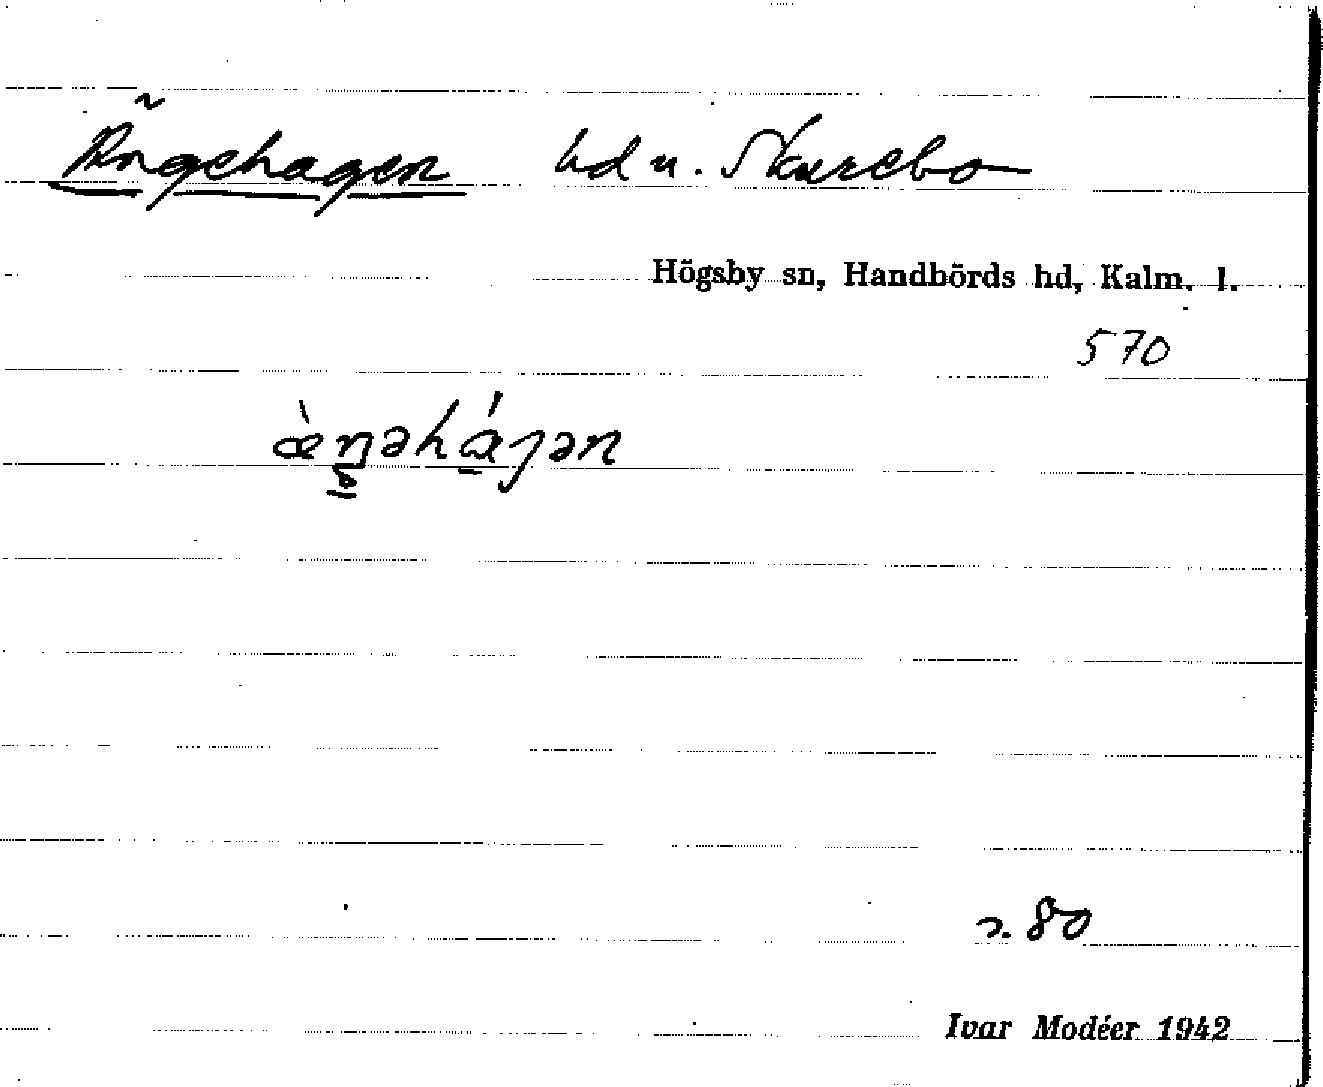 Ängehagen hd u. Skurebo
Högsby sn, Handbörds hd, Kalm. l.
570
æ̀ŋəhɑ́gən
2. 80
Ivar Modéer 1942